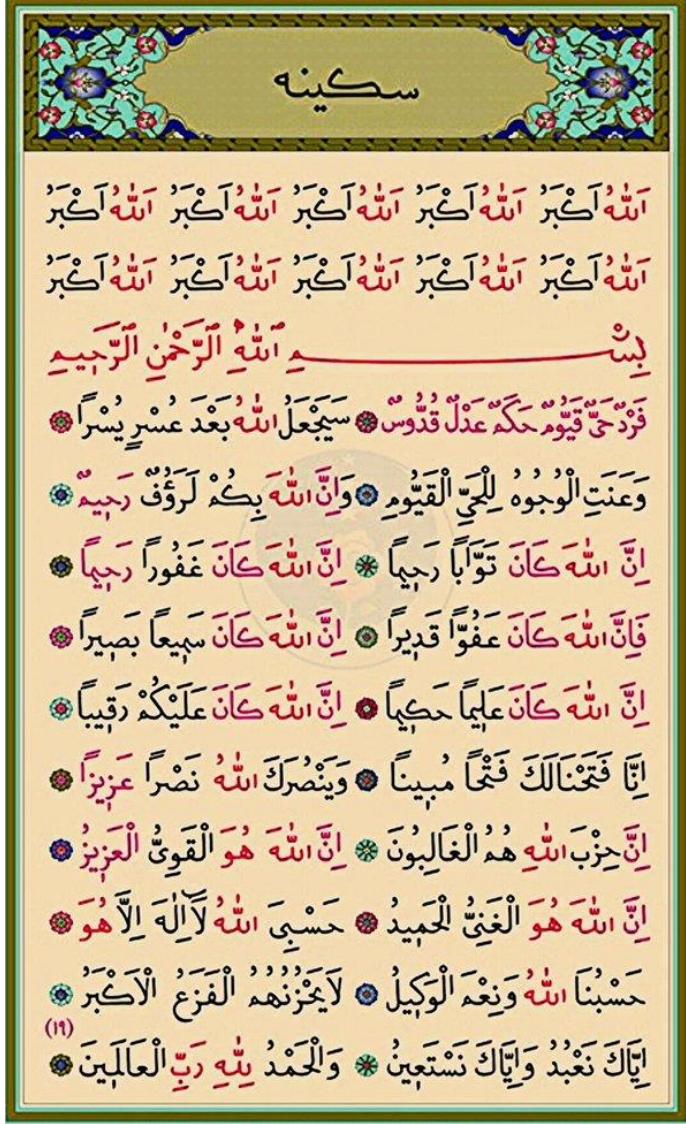 سكينه
اَللّٰهُ اَكْبَرُ اَللّٰهُ اَكْبَرُ اَللّٰهُ اَكْبَرُ اَللّٰهُ اَكْبَرُ اَللّٰهُ اَكْبَرُ
اَللّٰهُ اَكْبَرُ اَللّٰهُ اَكْبَرُ اَللّٰهُ اَكْبَرُ اَللّٰهُ اَكْبَرُ اَللّٰهُ اَكْبَرُ
بِسْمِ ٱللّٰهِ ٱلرَّحْمٰنِ ٱلرَّحِيمِ
فَرْدٌ حَىٌّ قَيُّومٌ حَكَمٌ عَدْلٌ قُدُّوسٌ ۞ سَيَجْعَلُ اللّٰهُ بَعْدَ عُسْرٍ يُسْرًا ۞
وَعَنَتِ الْوُجُوهُ لِلْحَىِّ الْقَيُّومِ ۞ وَاِنَّ اللّٰهَ بِكُمْ لَرَؤُفٌ رَحِيمٌ ۞
اِنَّ اللّٰهَ كَانَ تَوَّابًا رَحِيمًا ۞ اِنَّ اللّٰهَ كَانَ غَفُورًا رَحِيمًا ۞
فَاِنَّ اللّٰهَ كَانَ عَفُوًّا قَدِيرًا ۞ اِنَّ اللّٰهَ كَانَ سَمِيعًا بَصِيرًا ۞
اِنَّ اللّٰهَ كَانَ عَلِيمًا حَكِيمًا ۞ اِنَّ اللّٰهَ كَانَ عَلَيْكُمْ رَقِيبًا ۞
اِنَّا فَتَحْنَا لَكَ فَتْحًا مُبِينًا ۞ وَيَنْصُرَكَ اللّٰهُ نَصْرًا عَزِيزًا ۞
اِنَّ حِزْبَ اللّٰهِ هُمُ الْغَالِبُونَ ۞ اِنَّ اللّٰهَ هُوَ الْقَوِىُّ الْعَزِيزُ ۞
اِنَّ اللّٰهَ هُوَ الْغَنِىُّ الْحَمِيدُ ۞ حَسْبِىَ اللّٰهُ لَٓا اِلٰهَ اِلَّا هُوَ ۞
حَسْبُنَا اللّٰهُ وَنِعْمَ الْوَكِيلُ ۞ لَا يَحْزُنُهُمُ الْفَزَعُ الْاَكْبَرُ ۞
(١٩)
اِيَّاكَ نَعْبُدُ وَاِيَّاكَ نَسْتَعِينُ ۞ وَالْحَمْدُ لِلّٰهِ رَبِّ الْعَالَمِينَ ۞